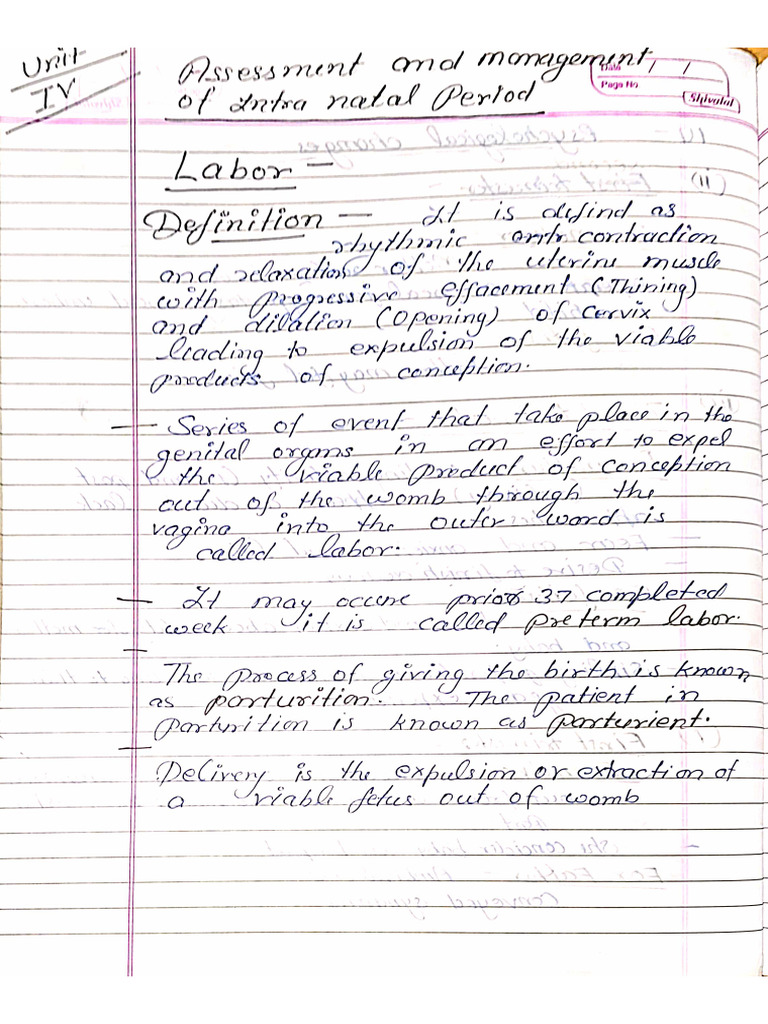 Unit
IV
Assessment and management
of Intra natal Period
Date / /
Page No
Shivalal
Labor -
Definition - It is defind as
rhythmic contraction
and relaxation of the uterine muscle
with progressive effacement (Thining)
and dilation (Opening) of Cervix
leading to expulsion of the viable
products of conception.
- Series of event that take place in the
genital organs in an effort to expel
the viable product of conception
out of the womb through the
vagina into the outer word is
called labor.
- It may occure prior 37 completed
week it is called preterm labor.
-
The process of giving the birth is known
as parturition. The patient in
parturition is known as parturient.
-
Delivery is the expulsion or extraction of
a viable fetus out of womb